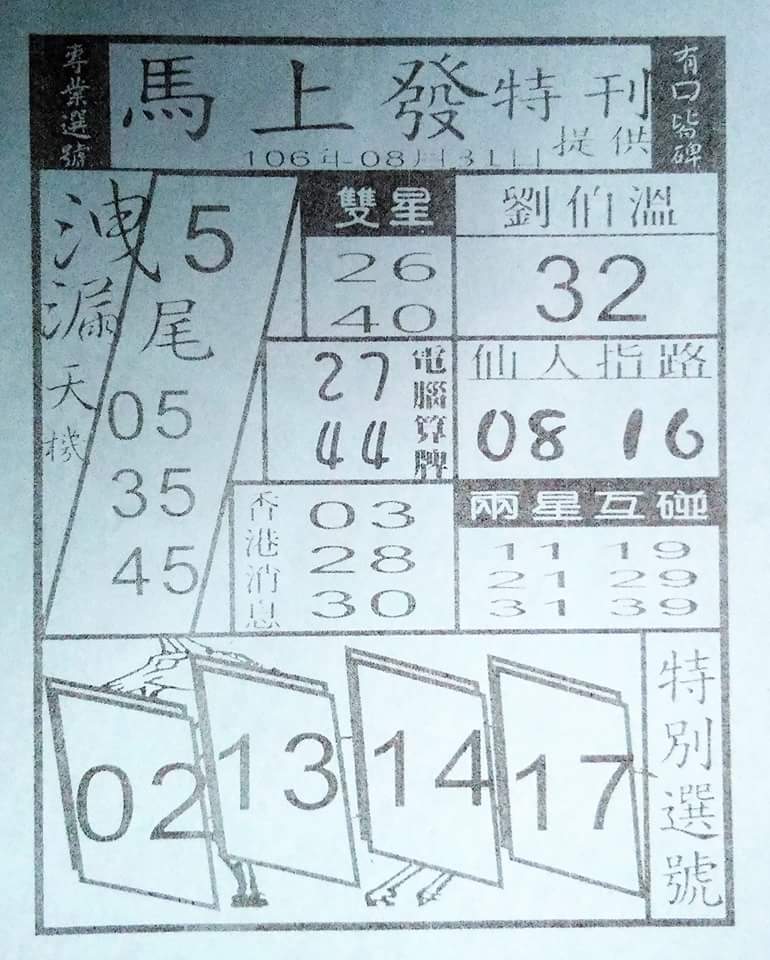 專業選號
馬上發特刊
提供
有口皆碑
106年08月31日
洩漏天機
5
尾
05
35
45
雙星
26
40
劉伯溫
32
27
44
電腦算牌
仙人指路
08 16
香港消息
03
28
30
兩星互碰
11 19
21 29
31 39
02 13 14 17
特別選號